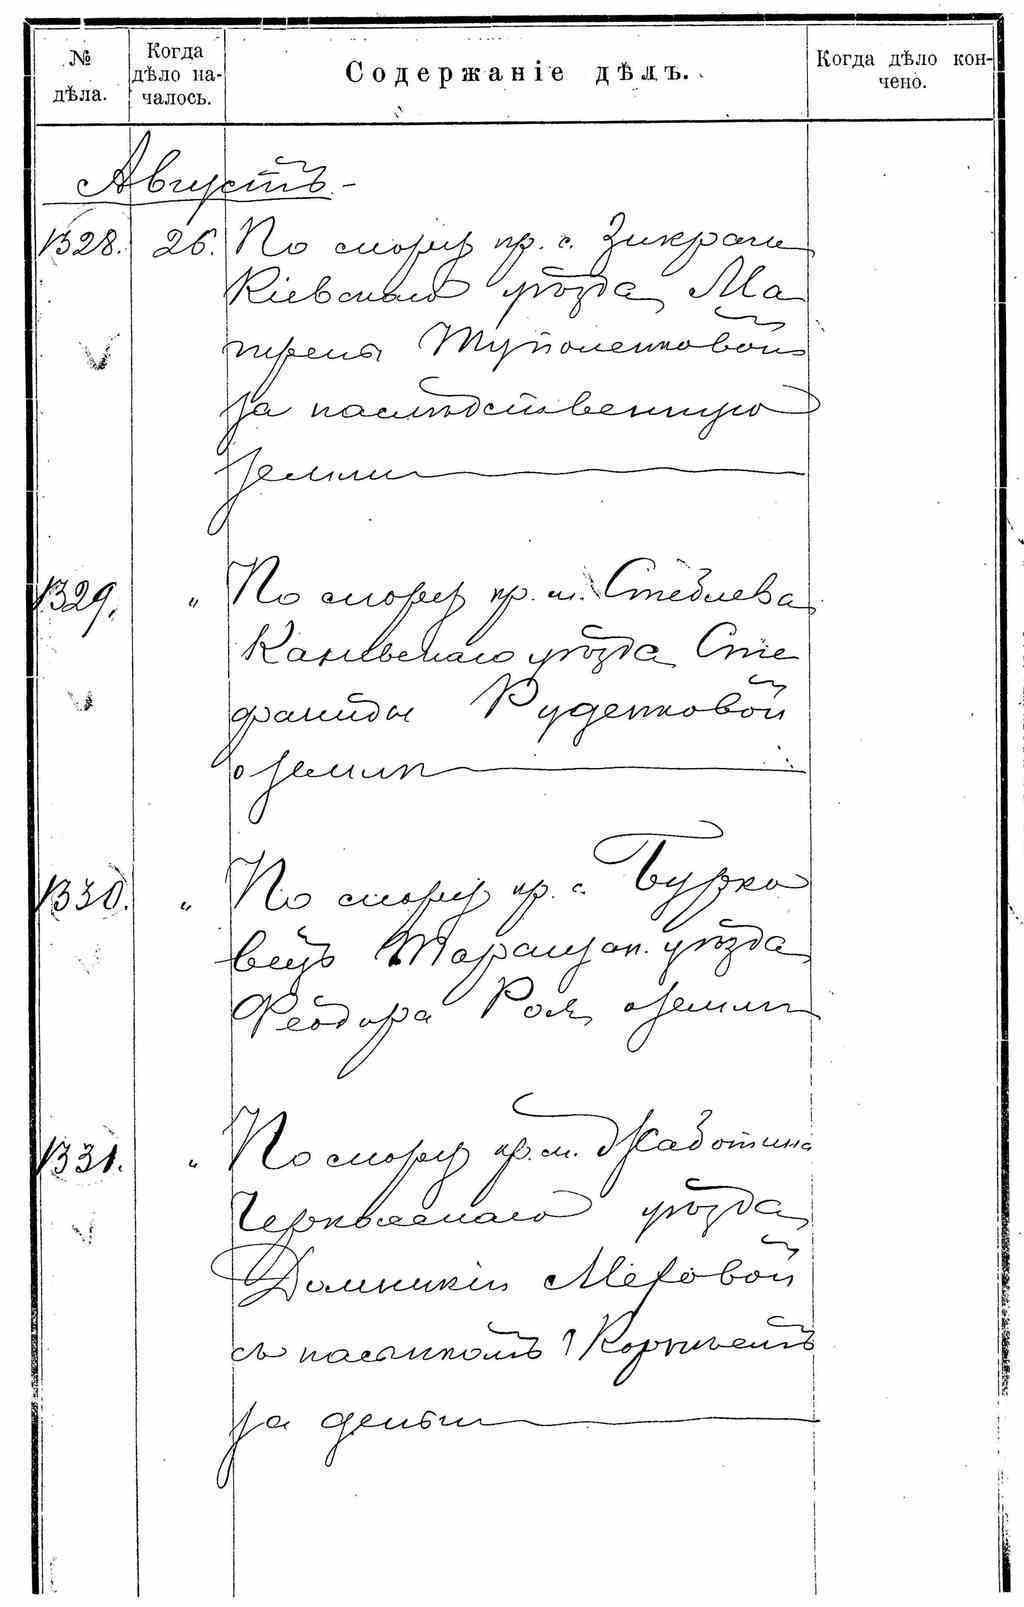 № дѣла.
Когда дѣло на-
чалось.
Содержаніе дѣлъ.
Когда дѣло кон-
чено.
Августъ.
1328. 26. По спору кр. с. Зикрачи
Кіевскаго уѣзда Ма
трены Туполенковой
за наслѣдственную
землю
1329. " По спору кр. м. Стеблева
Каневскаго уѣзда Сте
фаниды Руденковой
о землѣ
1330. " По спору кр. с. Бурко
вецъ Таращан. уѣзда
Феодора Роя о землѣ
1331. " По спору кр. м. Жаботина
Черкасскаго уѣзда
Домникіи
съ пасынкомъ
за деньги